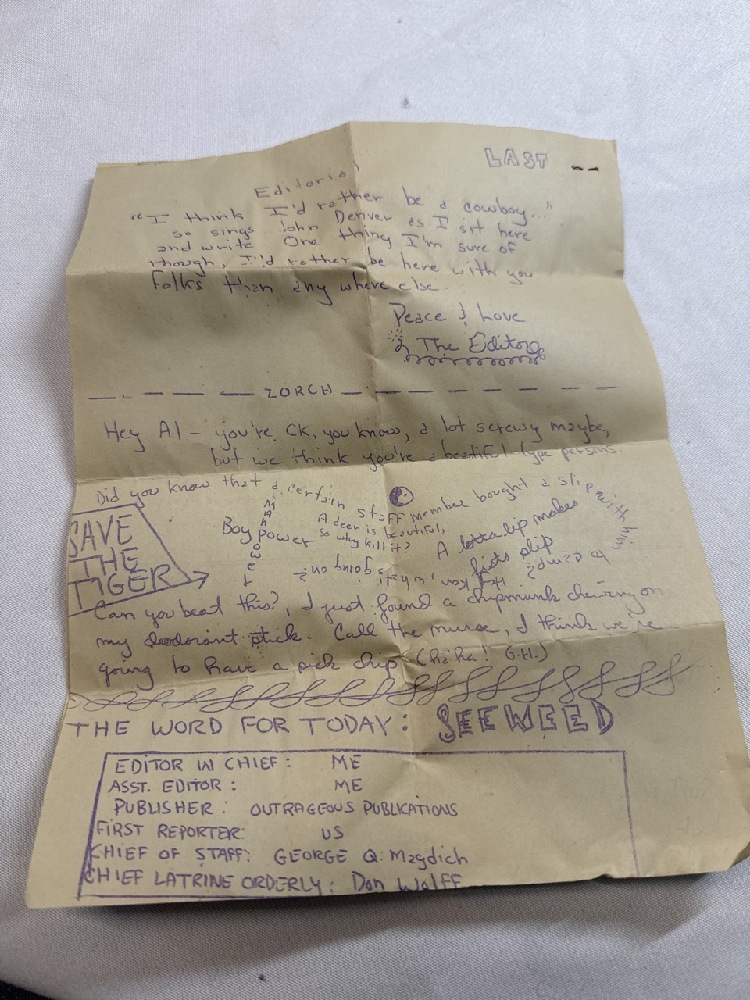 LAST --
Editorial
"I think I'd rather be a cowboy..."
so sings John Denver as I sit here
and write One thing I'm sure of
though, I'd rather be here with you
folks than any where else.
Peace & Love
The Editor
ZORCH
Hey Al - you're OK, you know, a lot screwy maybe,
but we think you're a beautiful type persons.
Did you know that a certain staff member bought a slip with him
to camp? Hey Ken, what's going on?
SAVE
THE
TIGER
Boy Power
A deer is beautiful,
so why kill it?
A lotta lip makes
fists slip
Can you beat this?, I just found a chipmunk chewing on
my deodorant stick. Call the nurse, I think we're
going to have a sick chip (ha ha! G.H.)
THE WORD FOR TODAY: SEEWEED
EDITOR IN CHIEF: ME
ASST. EDITOR: ME
PUBLISHER: OUTRAGEOUS PUBLICATIONS
FIRST REPORTER: US
CHIEF OF STAFF: GEORGE Q. Magdich
CHIEF LATRINE ORDERLY: Don Wolff